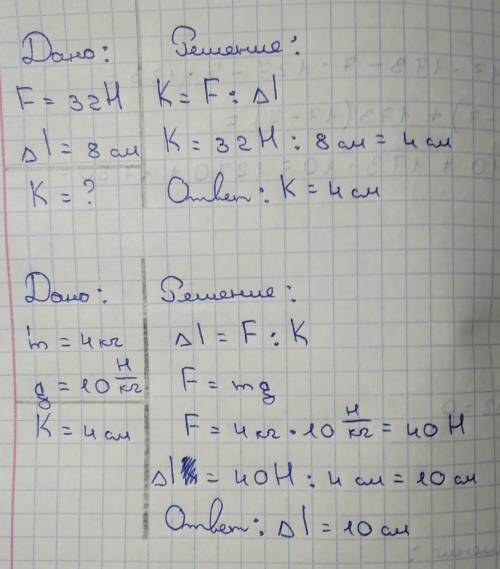 Дано: Решение:
F = 32Н K = F : Δl
Δl = 8 см K = 32Н : 8 см = 4 см
K = ? Ответ: K = 4 см
Дано: Решение:
m = 4кг Δl = F : K
g = 10 Н/кг F = mg
K = 4 см F = 4 кг · 10 Н/кг = 40 Н
Δl = 40Н : 4 см = 10 см
Ответ: Δl = 10 см